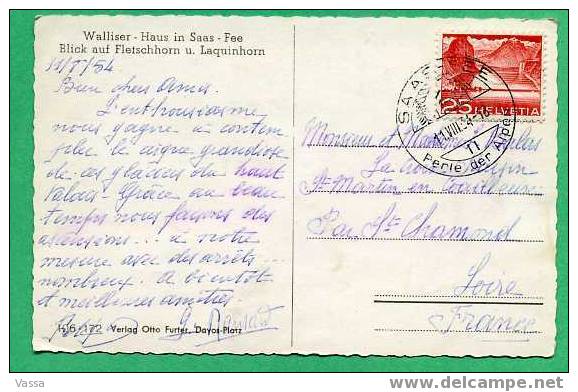 Walliser - Haus in Saas - Fee
Blick auf Fletschhorn u. Laquinhorn
11/8/54
Bien chers Amis.
L'enthousiasme
nous gagne à contem
pler le cirque grandiose
de ces glaciers du haut
Valais - Grâce au beau
temps nous faisons des
ascensions... à notre
mesure avec des arrêts...
nombreux. A bientôt
et meilleures amitiés.
11 6 172 Verlag Otto Furter, Davos-Platz
25 HELVETIA
SAAS-FEE
11.VIII.54
11
Perle der Alpen
Monsieur et Madame
La
St-Martin en Coailleux
Par St-Chamond
Loire
France
Vassa
www.delcampe.net